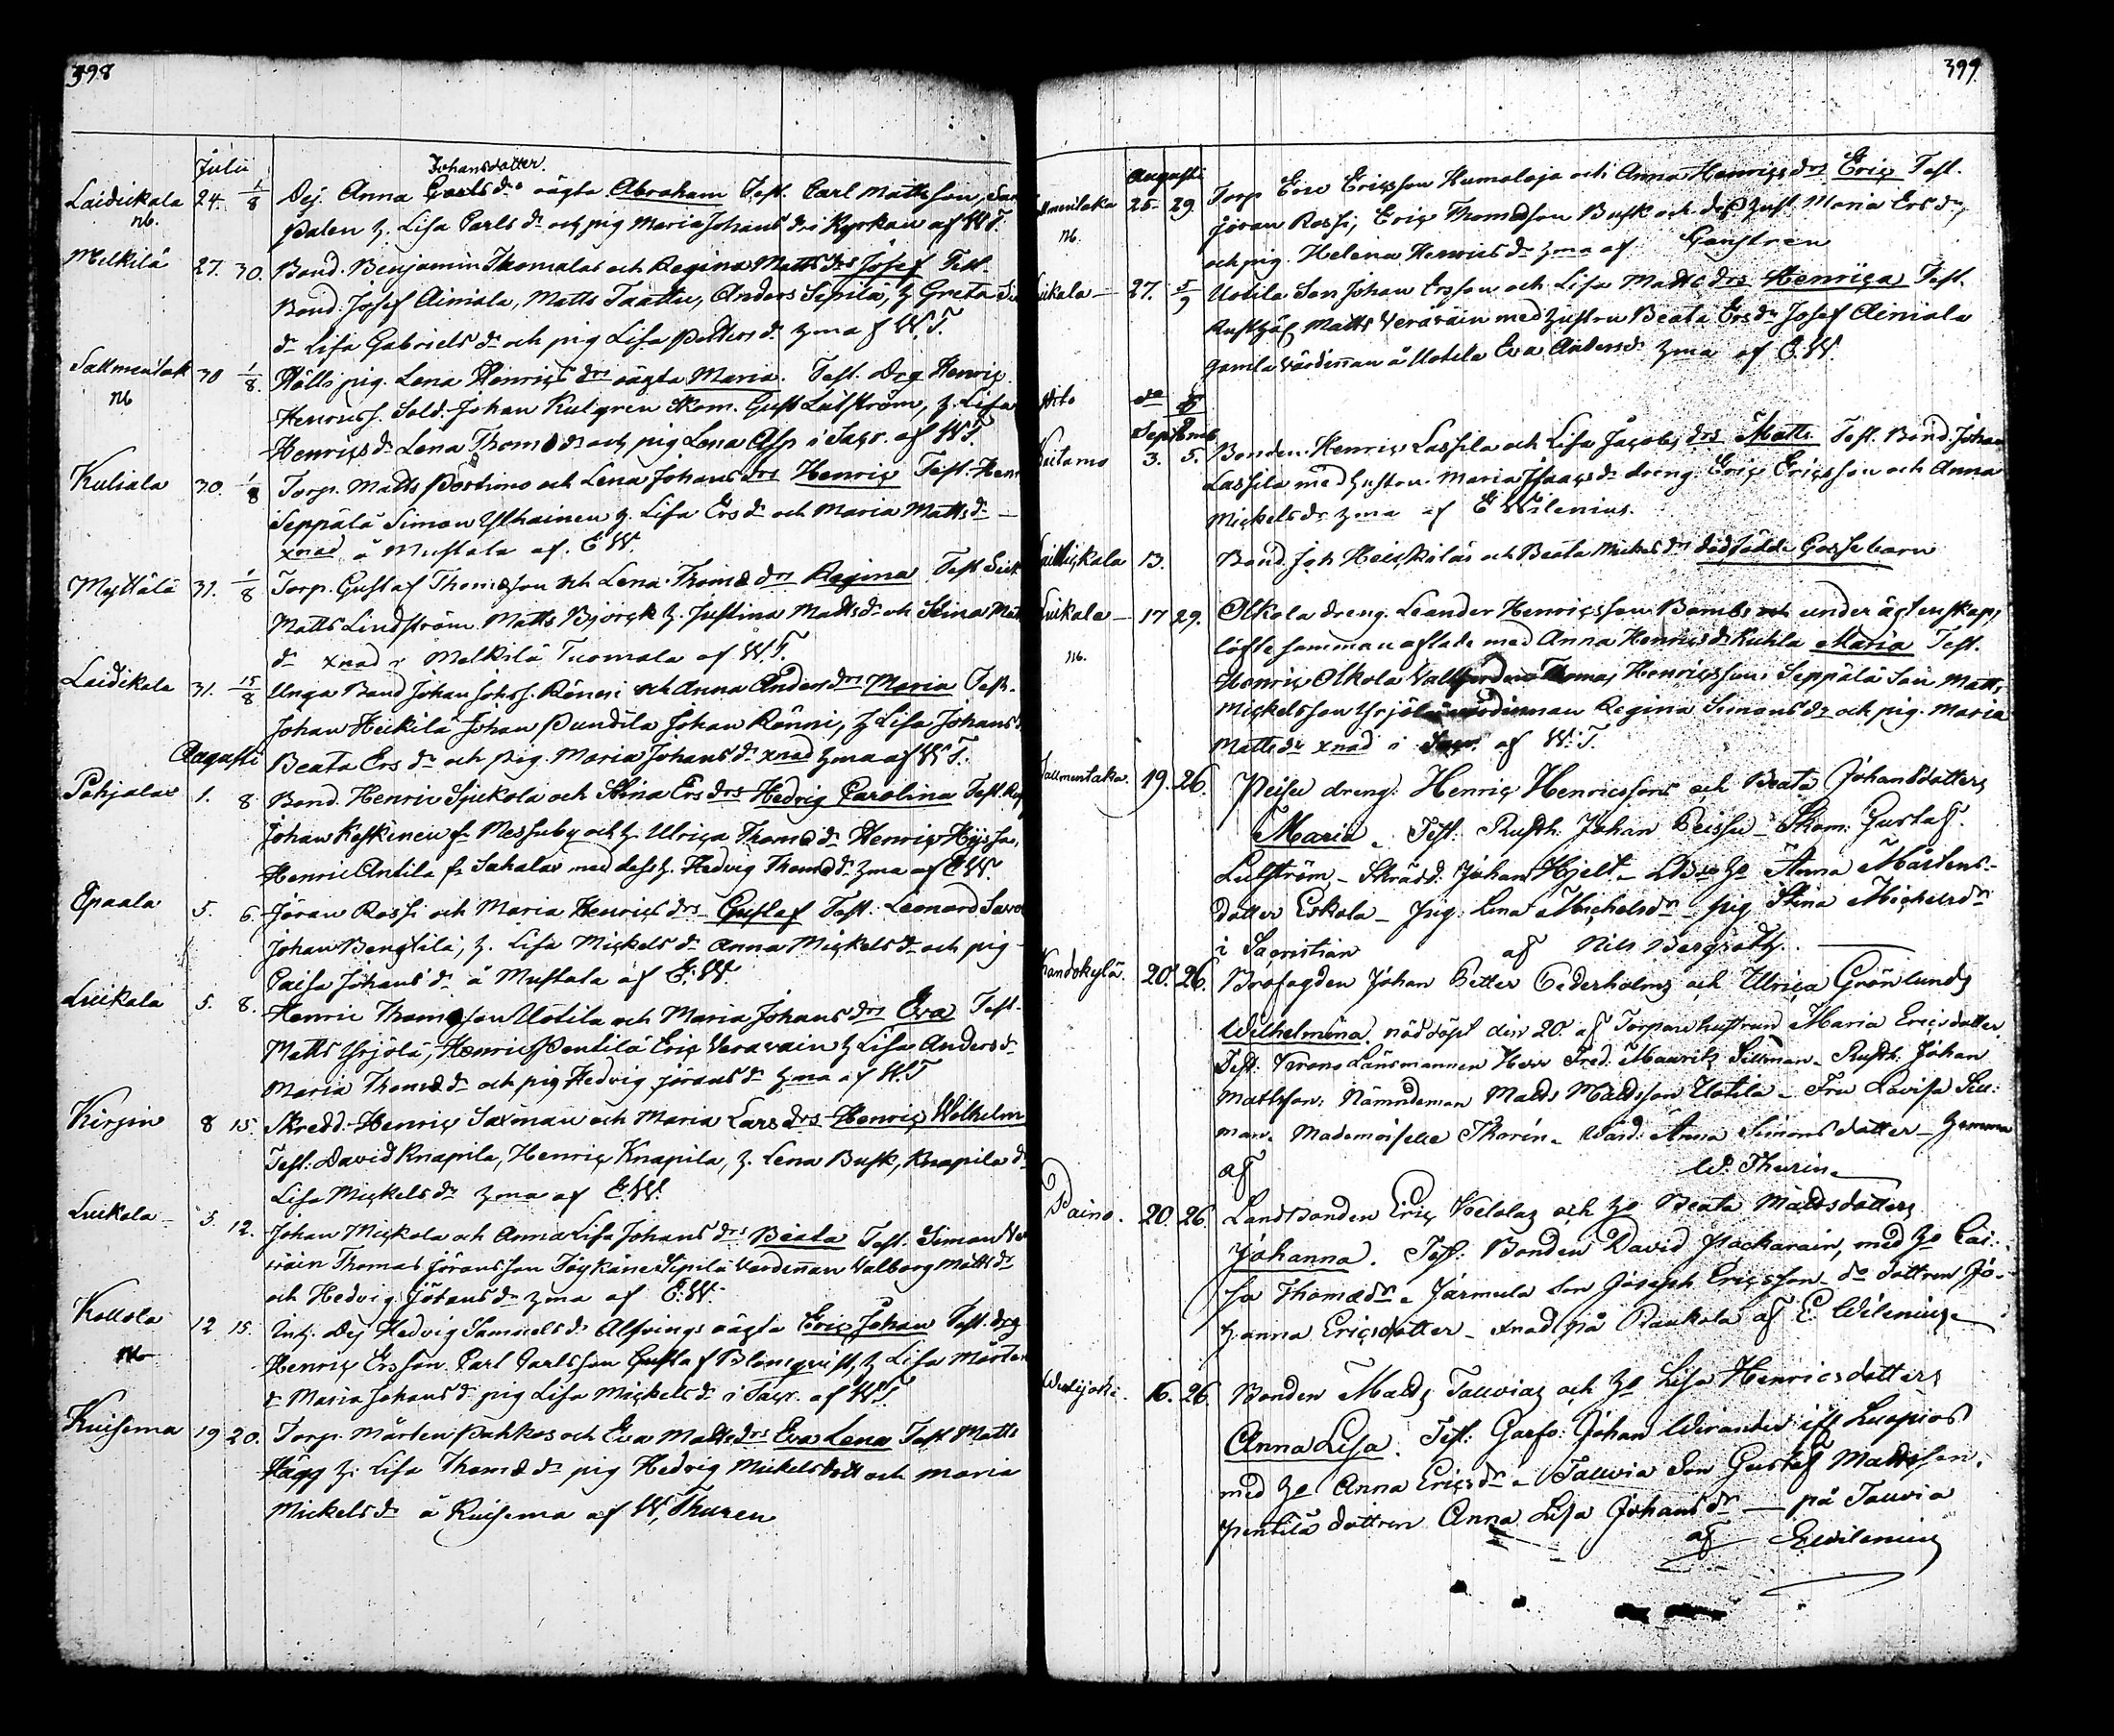 398
Julii
Johansdotter
Laidikala 24. 1/8 Dej. Anna Carlsdrs oägta Abraham Test. Carl Mattsson,
nb. Palen h. Lisa Carls dr och pig Maria Johans dr i Kyrkan af W T.
Melkilä 27. 30. Bond. Benjamin Thomalas och Regina Matts drs Josef Test.
Bond. Josef Äimälä, Matts Taattu, Anders Sipilä, h Greta
dr Lisa Gabriels dr och pig Lisa Petters dr hma af W. T.
Sallmentak 30 1/8. Hälls pig. Lena Henrics drs oägta Maria. Test. Drg Henric
nb Henricss. Sold. Johan Kulgren Skom. Gust Lulström, h. Lisa
Henrics dr Lena Thomæ dr och pig Lena Asp i Sacr. af W T.
Kuliala 30. 1/8 Torp. Matts Portimo och Lena Johans drs Henric Test. Henr
Seppälä Simon Ylhäinen h. Lisa Ers dr och Maria Matts dr
xnad å Mustala af. E W.
Myttälä 31. 1/8 Torp. Gustaf Thomæson och Lena Thomæ drs Regina Test
Matts Lindström Matts Björck h. Justina Matts dr och Stina Mat
dr xnad i Melkilä Tuomala af W. T.
Laidikala 31. 15/8 Unga Bond Johan Johss. Rönni och Anna Anders drs Maria Test.
Johan Heikilä Johan Pundila Johan Rönni, h Lisa Johans
Augusti Beata Ers dr och pig. Maria Johans dr xnad hma af W T.
Pohjala 1. 8 Bond. Henric Sjukola och Stina Ers drs Hedvig Carolina Test.
Johan Keskinen fr Messuby och h. Ulrica Thomæ dr Henric Hyrssa,
Henric Antila fr Sahalax med dess h. Hedvig Thomæ dr hma af E W.
Epaala 5. 6 Jöran Rossi och Maria Henrics drs Gustaf Test: Leonard
Johan Bengtilä, h. Lisa Mickels dr Anna Mickels dr och pig
Caisa Johans dr å Mustala af E. W.
Luikala 5. 8. Henric Thomæson Uotila och Maria Johans drs Eva Test.
Matts Yrjölä, Henric Pentilä Eric Veravain h Lisa Anders dr
Maria Thomæ dr och pig Hedvig Jörans dr hma af W. T
Kirpin 8 15. Skredd. Henric Saxman och Maria Lars drs Henric Wilhelm
Test: David Knapila, Henric Knapila, h. Lena Busk, Knapila dr
Lisa Mickels dr hma af E. W.
Luikala 5. 12. Johan Mickola och Anna Lisa Johans drs Beata Test: Simon Ve
räin Thomas Jöransson Töykäne Sipilä Värdinnan Valborg Matts dr
och Hedvig Jörans dr hma af E. W.
Kollola 12 15. Inh. Dej Hedvig Samuels dr Alfvings oägta Eric Johan Test. drg
Nb Henric Ersson Carl Carlsson Gustaf Blomqvist, h Lisa Mårten
dr Maria Johans dr pig Lisa Mickels dr i Sacr. af W T.
Kuisema 19 20. Torp. Mårten Pahkos och Eva Matts drs Eva Lena Test Matts
Hägg h. Lisa Thomæ dr pig Hedvig Mickels dott och Maria
Mickels dr å Kuisema af W. Thuren
399
Augusti
25. 29. Torp Eric Ericsson Humaloja och Anna Henrics drs Eric Test.
nb. Jöran Rossi, Eric Thomæson Busk och dess hust. Maria Ers dr
och pig. Helena Henrics dr hma af
27. 5/9 Uotila Son Johan Ersson och Lisa Matts drs Henrica Test.
Rusthål. Matts Veravain med hustru Beata Ers dr Josef Äimälä
gamla värdinnan å Uotila Eva Anders dr hma af E. W
Septemb.
3. 5. Bonden Henric Lassila och Lisa Jacobs drs Matts Test. Bond. Johan
Lassila med hustru Maria Isaacs dr dreng. Eric Ericsson och Anna
Mickels dr hma af E Wilenius.
13. Bond. Joh Heickiläs och Beata Mickels drs dödfödde Gossebarn
Luikala 17 29. Olkola dreng. Leander Henricsson Bombs under ägtenskaps
nb. löfte samman aflade med Anna Henrics dr Maria Test.
Henric Olkola Thomas Henricsson, Seppälä Son Matts
Mickelsson Yrjölä värdinnan Regina Simons dr och pig. Maria
Matts dr xnad i Sacr. af W. T.
Sallmentaka 19. 26. Peisu dreng. Henric Henricssons och Beata Johansdotters
Maria. Test: Rusth. Johan Peissu - Skom: Gustaf
Lulström - Skrädd: Johan Hjelt - ho Anna Mårtens-
dotter Eskola - pig: Lena Michelsdr - pig Stina Michelsdr
i Sacristian af Nils Bergroth.
20. 26. Brofogden Johan Petter Cederholms och Ulrica Grönlunds
Wilhelmina. nöddöpt den 20. af Torpare hustrun Maria Ericsdotter
Test: Krono Länsmannen Herr Fred. Mauritz Sillman - Rusth: Johan
Mattsson: Nämndeman Matts Mattsson Uotila - Fru Lovisa Sill:
man - Mademoiselle Thurén - Wärd: Anna Simonsdotter - hemma
af W. Thurén
Paino. 20. 26. Landbonden Eric Kelolas och ho Beata Mattsdotters
Johanna. Test: Bonden David Packarain, med ho Cai:
sa Thomædr - Jarmula Son Joseph Ericsson - do dottren Jo-
hanna Ericsdotter - xnad på Raukola af E. Wilenius
16. 26. Bonden Matts Tauvias och ho Lisa Henricsdotters
Anna Lisa. Test: Garfv: Johan Wirander ifr Luopiois
med ho Anna Ericsdr - Tauvia Son Gustaf Mattsson.
Pentilä dottren Anna Lisa Johansdr - på Tauvia
af E. Wilenius